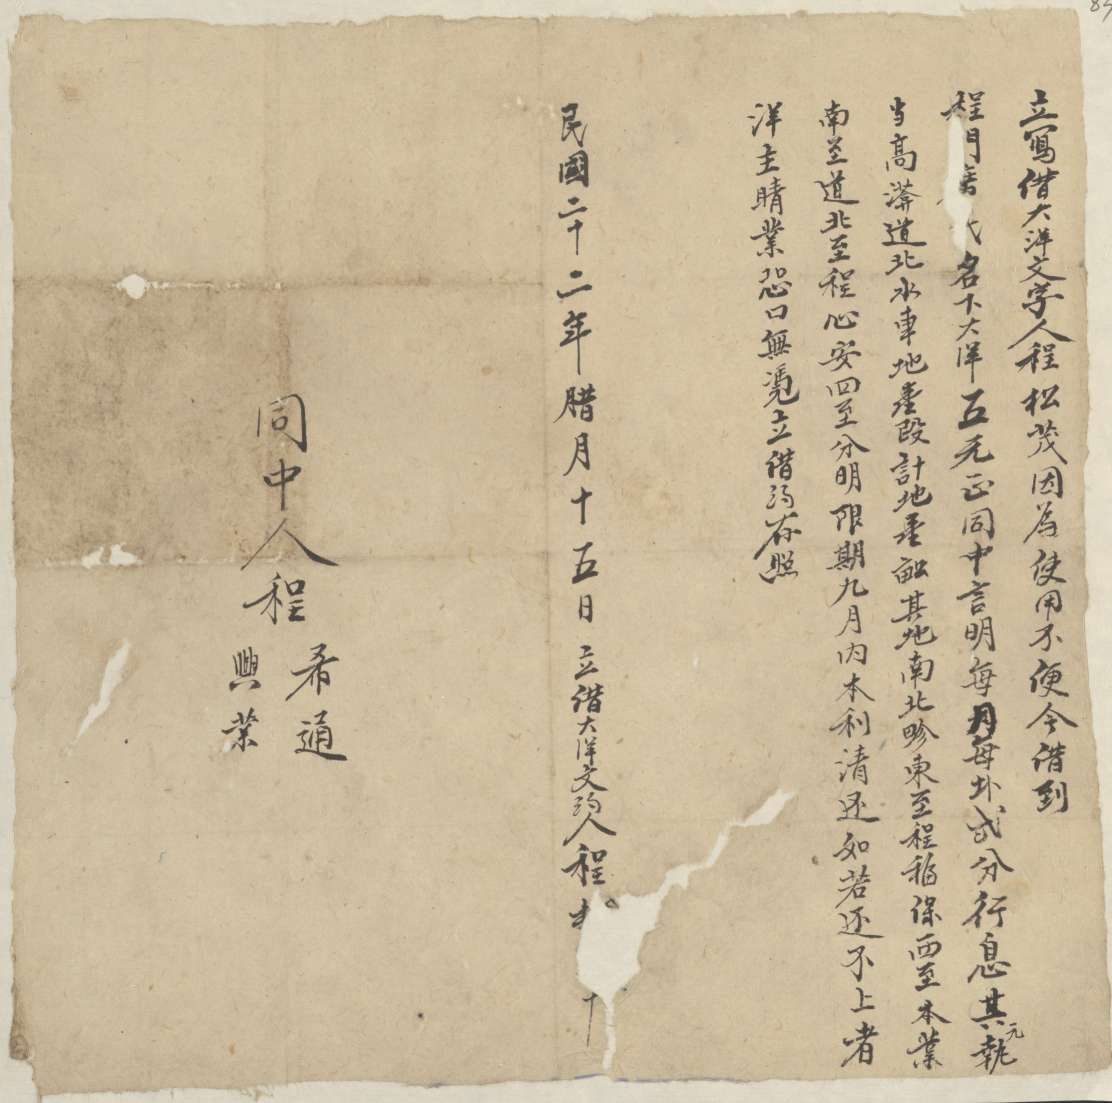 立寫借大洋文字人程松茂因為使用不便今借到
程門 氏名下大洋五元正同中言明每月每元弍分行息其執
当高 道北水車地壹段計地壹畝其地南北畛東至程福保西至本業
南至道北至程心安四至分明限期九月内本利清还如若还不上者
洋主睛業恐口無憑立借约存照
民國二十二年腊月十五日 立借大洋文约人程
同中人程
希通
興業